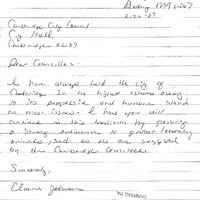 Reading, MA 01867
2-20-87
Cambridge City Council
City Hall
Cambridge 02139
Dear Councillor:
I have always held the city of
Cambridge in the highest esteem owing
to its progressive and humane stand
on most issues. I hope you will
continue in this tradition by passing
a strong ordinance to protect laboratory
animals, such as the one suggested
by the Cambridge Committee
Sincerely,
Claire Johnson